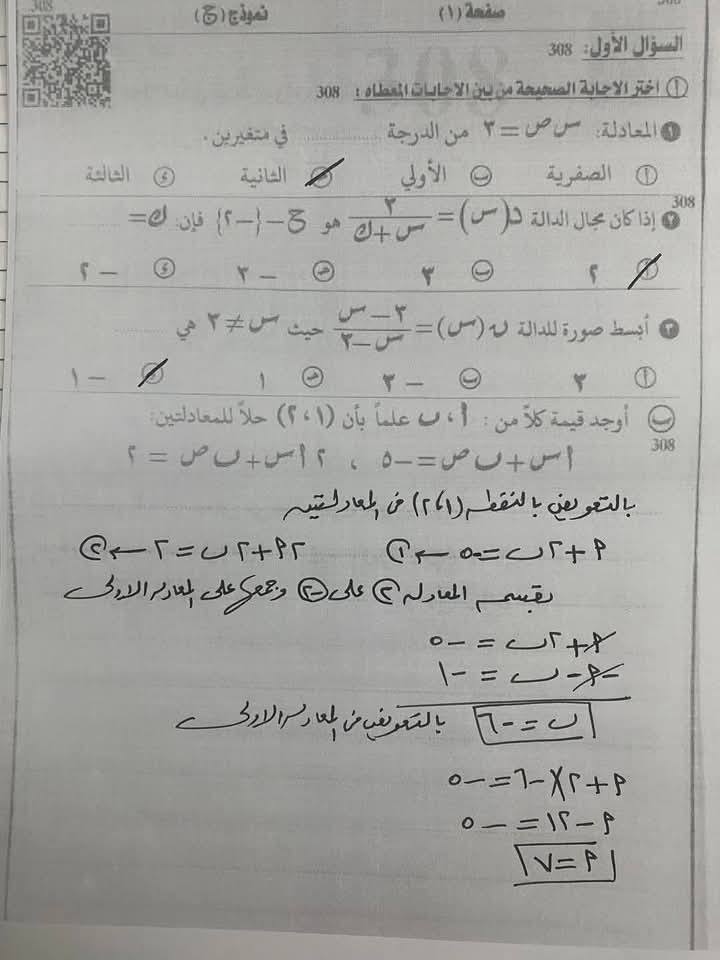 308
صفحة (١) نموذج (ج)
السؤال الأول: 308
أ اختر الإجابة الصحيحة من بين الإجابات المعطاه: 308
١ المعادلة: س ص = ٣ من الدرجة .......... في متغيرين.
أ الصفرية ب الأولي ج الثانية د الثالثة
308
٢ إذا كان مجال الدالة د(س) = ٣/(س + ك) هو ح - {-٢} فإن: ك =
أ ٢ ب ٣ ج - ٣ د - ٢
٣ أبسط صورة للدالة ن(س) = (٣ - س)/(س - ٣) حيث س ≠ ٣ هي
أ ٣ ب - ٣ ج ١ د - ١
ب أوجد قيمة كلاً من: أ، ب علماً بأن (١، ٢) حلاً للمعادلتين:
308
أس + ب ص = -٥ ، ٢ أس + ب ص = ٢
بالتعويض بالنقطه (١،٢) في المعادلتين
أ + ٢ب = -٥ ← ١ ٢أ + ٢ب = ٢ ← ٢
بقسمه المعادله ٢ على -٢ وجمعها على المعادله الاولى
أ + ٢ب = -٥
-أ - ب = -١
ب = -٦ بالتعويض في المعادله الاولى
أ + ٢ × -٦ = -٥
أ - ١٢ = -٥
أ = ٧